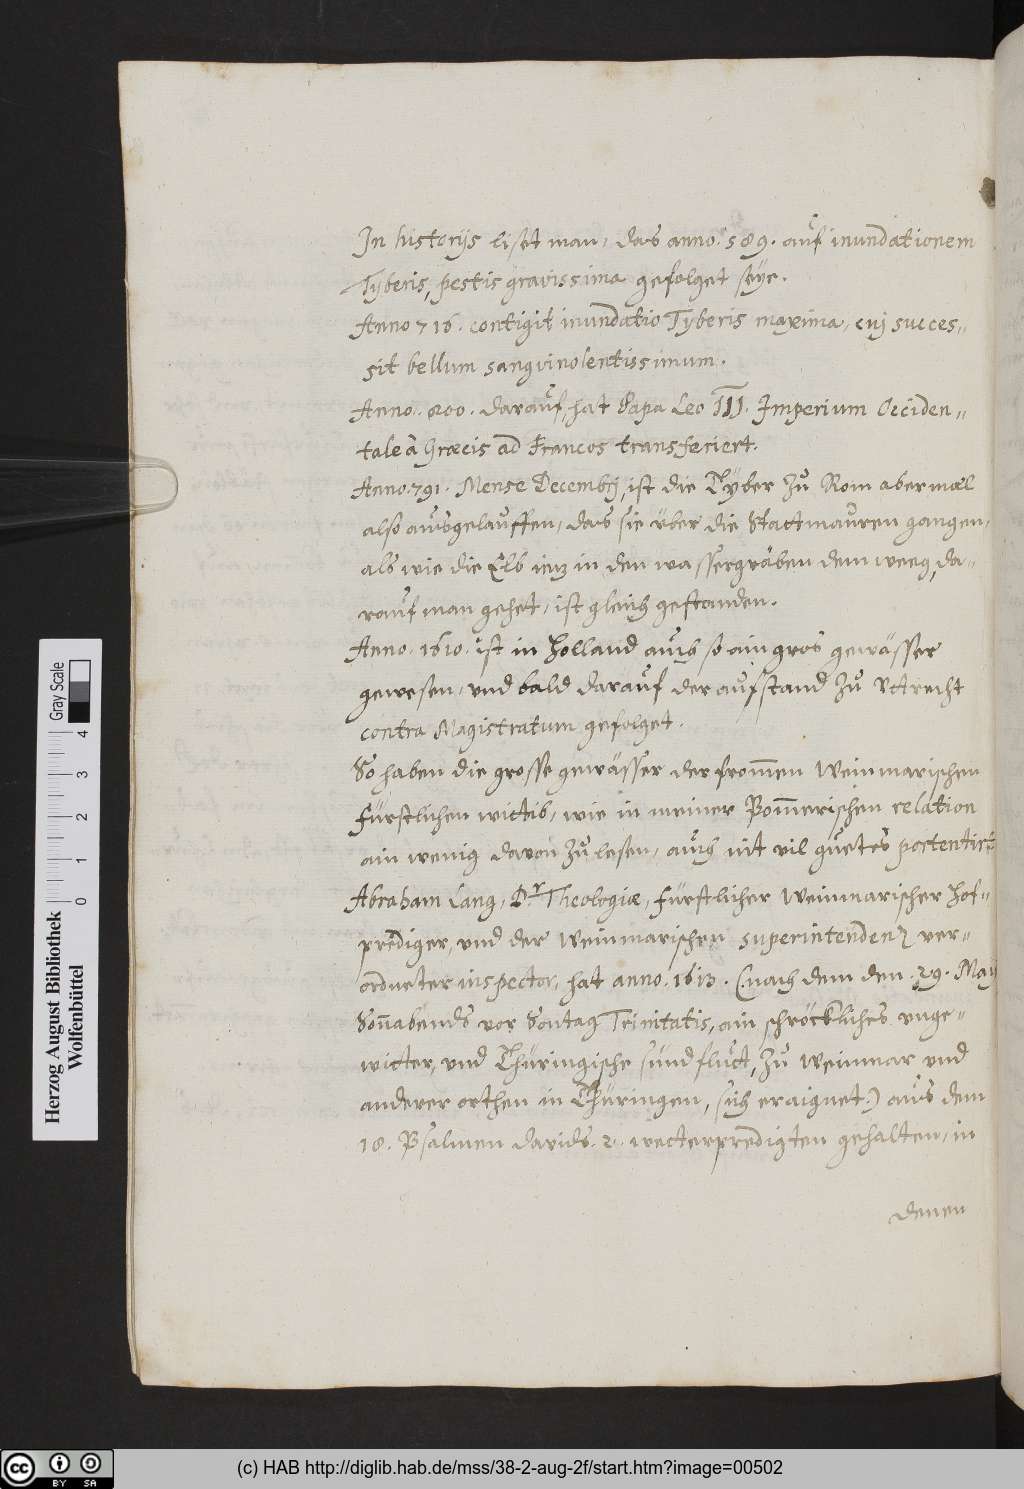 In historijs liset man, das anno. 589. auf inundationem
Tyberis, pestis gravissima gefolget seye.
Anno 716. contigit inundatio Tyberis maxima, cuj succes-
sit bellum sangvinolentissimum.
Anno. 800. darauf, hat Papa Leo III. Imperium Occiden-
tale à Græcis ad Francos transferiert.
Anno. 791. Mense Decembrj, ist die Tyber zu Rom abermal
also ausgelauffen, das sie über die Stattmauren gangen,
als wie die Elb iezt in den wassergräben dem weeg, da-
rauf man gehet, ist gleich gestanden.
Anno. 1610. ist in Holland auch so ain gros gewässer
gewesen, und bald darauf der aufstand zu Vtrecht
contra Magistratum gefolget.
So haben die grosse gewässer der from̅en Weinmarischen
fürstlichen wittib, wie in meiner Bom̅erischen relation
ain wenig davon zu lesen, auch nit vil guetes portentirt
Abraham Lang, Dr. Theologiæ, fürstlicher Weinmarischer Hof-
prediger, und der Weinmarischen superintendenz ver-
ordneter inspector, hat anno. 1613. (nach dem den. 29. May
Son̅abends vor Sontag Trinitatis, ain schröckliches unge-
witter, und Thüringische sündfluct, zu Weinmar und
anderer orthen in Thüringen, sich eraignet.) aus dem
18. Psalmen Davids. 2. wetterpredigten gehalten, in
denen
Herzog August Bibliothek
Wolfenbüttel
Gray Scale
0 1 2 3 4
cc BY SA
(c) HAB http://diglib.hab.de/mss/38-2-aug-2f/start.htm?image=00502